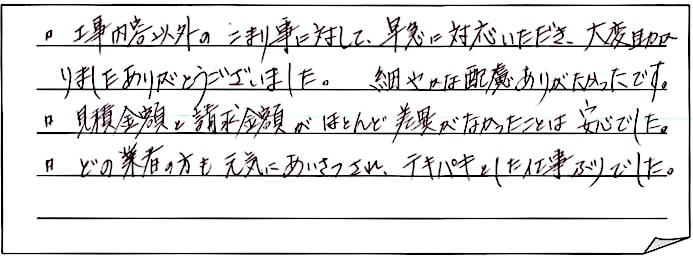 ▫ 工事内容以外のこまり事に対して、早急に対応いただき、大変助か
りましたありがとうございました。 細やかな配慮ありがたかったです。
▫ 見積金額と請求金額がほとんど差異がなかったことは安心でした。
▫ どの業者の方も元気にあいさつされ、テキパキとした仕事ぶりでした。